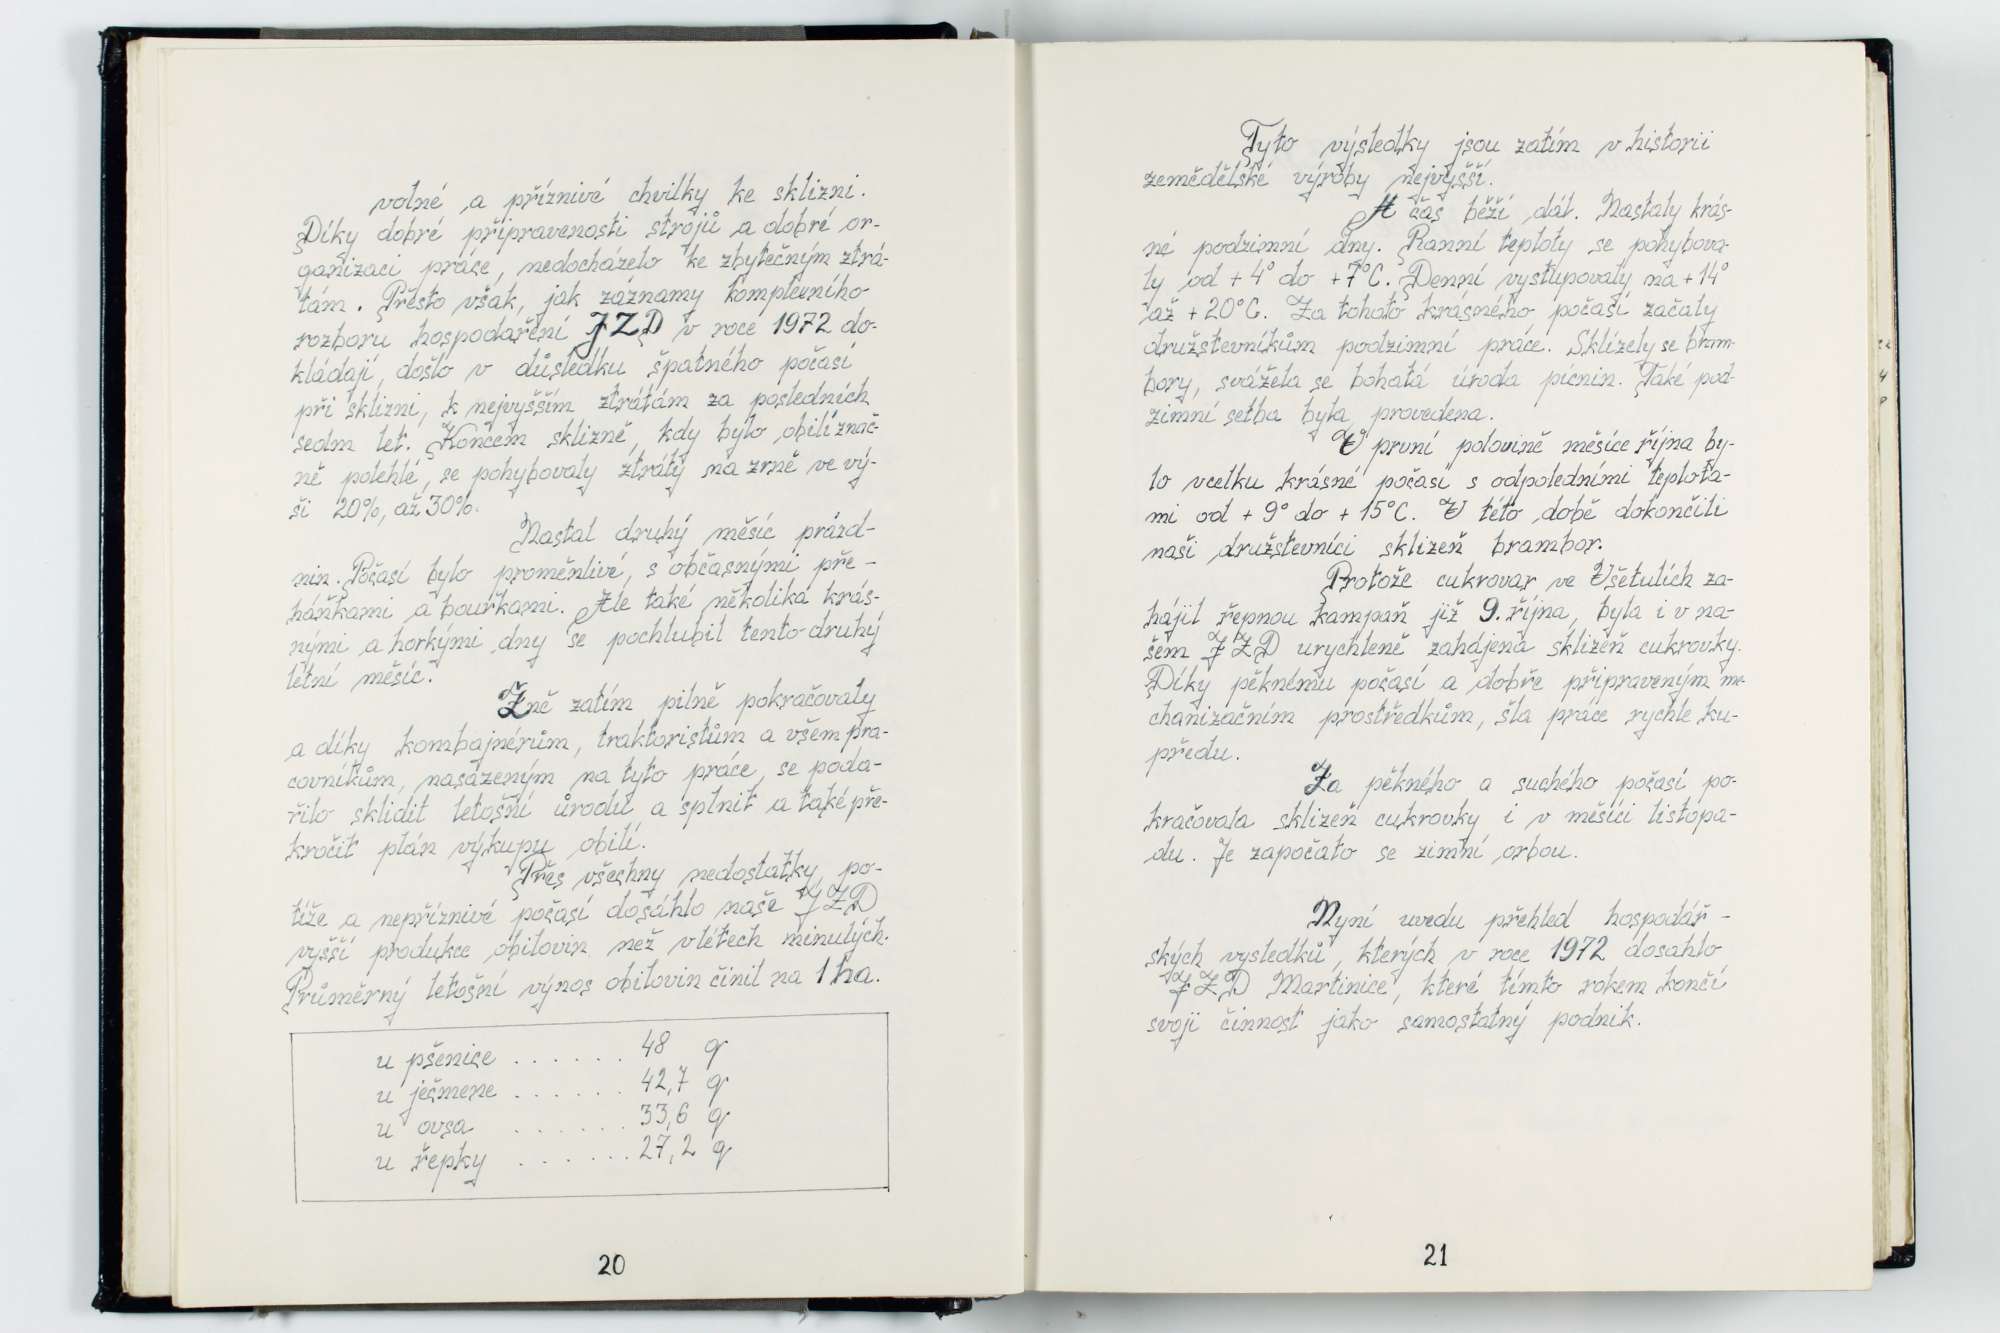 volné a příznivé chvilky ke sklizni.
Díky dobré připravenosti strojů a dobré or-
ganizaci práce, nedocházelo ke zbytečným ztrá-
tám. Přesto však, jak záznamy komplexního
rozboru hospodaření JZD v roce 1972 do-
kládají, došlo v důsledku špatného počasí
při sklizni, k nejvyšším ztrátám za posledních
sedm let. Koncem sklizně, kdy bylo obilí znač-
ně polehlé, se pohybovaly ztráty na zrně ve vý-
ši 20%, až 30%.
Nastal druhý měsíc prázd-
nin. Počasí bylo proměnlivé, s občasnými pře-
háňkami a bouřkami. Ale také několika krás-
nými a horkými dny se pochlubil tento druhý
letní měsíc.
Žně zatím pilně pokračovaly
a díky kombajnérům, traktoristům a všem pra-
covníkům, nasazeným na tyto práce, se poda-
řilo sklidit letošní úrodu a splnit a také pře-
kročit plán výkupu obilí.
Přes všechny nedostatky, po-
tíže a nepříznivé počasí dosáhlo naše JZD
vyšší produkce obilovin než v létech minulých.
Průměrný letošní výnos obilovin činil na 1 ha.
u pšenice . . . . . . 48 q
u ječmene . . . . . . 42,7 q
u ovsa . . . . . . 33,6 q
u řepky . . . . . . 27,2 q
20
Tyto výsledky jsou zatím v historii
zemědělské výroby nejvyšší.
A čas běží dál. Nastaly krás-
né podzimní dny. Ranní teploty se pohybova-
ly od + 4° do +7°C. Denní vystupovaly na + 14°
až + 20°C. Za tohoto krásného počasí začaly
družstevníkům podzimní práce. Sklízely se bram-
bory, svážela se bohatá úroda pícnin. Také pod-
zimní setba byla provedena.
V první polovině měsíce října by-
lo vcelku krásné počasí s odpoledními teplota-
mi od + 9° do + 15°C. V této době dokončili
naši družstevníci sklizeň brambor.
Protože cukrovar ve Všetulích za-
hájil řepnou kampaň již 9. října, byla i v na-
šem JZD urychleně zahájena sklizeň cukrovky.
Díky pěknému počasí a dobře připraveným me-
chanizačním prostředkům, šla práce rychle ku-
předu.
Za pěkného a suchého počasí po-
kračovala sklizeň cukrovky i v měsíci listopa-
du. Je započato se zimní orbou.
Nyní uvedu přehled hospodář-
ských vysledků, kterých v roce 1972 dosahlo
JZD Martinice, které tímto rokem končí
svoji činnost jako samostatný podnik.
21